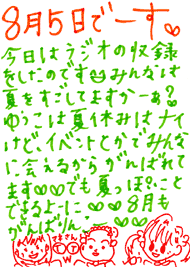 8月5日でーす♡
今日はラジオの収録
をしたのです みんなは
夏をすごしてますかーぁ?
ゆうこは夏休みはナイ
けど、イベントとかでみんな
に会えるからがんばれて
ます♡♡でも夏っぽいこと
できるよーに♡♡8月も
がんばりん